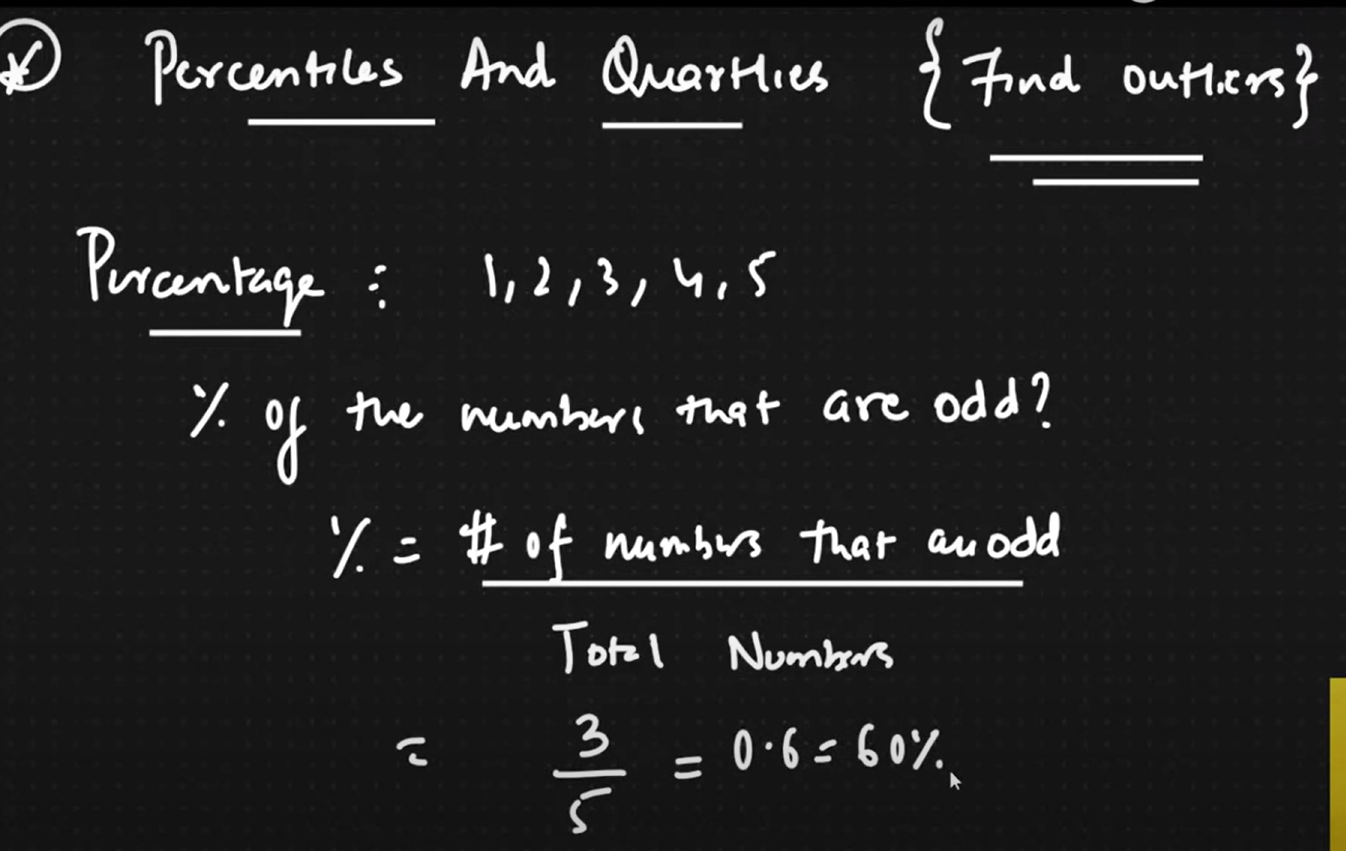 * Percentiles And Quartiles {Find outliers}
Percentage : 1, 2, 3, 4, 5
% of the numbers that are odd?
% = # of numbers that are odd
Total Numbers
= 3
5
= 0.6 = 60%